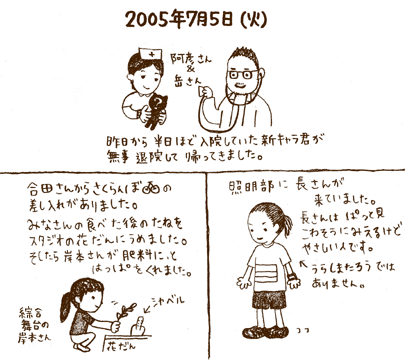 2005年7月5日(火)
阿彦さん
&
岳さん
昨日から半日ほど入院していた新キャラ君が
無事退院して帰ってきました。
合田さんからさくらんぼの
差し入れがありました。
みなさんの食べた後のたねを
スタジオの花だんにうめました。
そしたら岸本さんが肥料に、と
はっぱをくれました。
シャベル
綜合
舞台の
岸本さん
花だん
照明部に長さんが
来ていました。
長さんはぱっと見
こわそうにみえるけど
やさしい人です。
うらしまたろうでは
ありません。